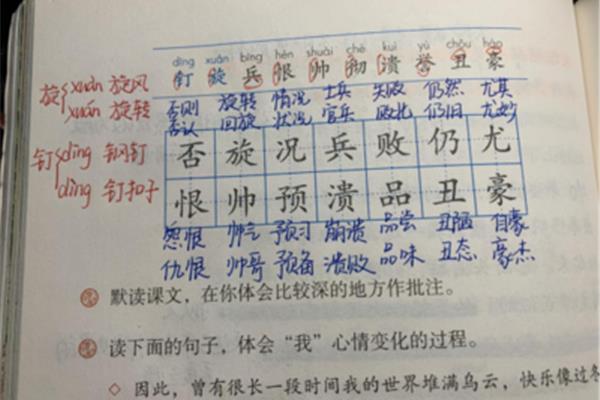 dīng xuán bīng hèn shuài chè kuì yù chǒu háo
钉 旋 兵 恨 帅 彻 溃 誉 丑 豪
旋 xuàn 旋风
xuán 旋转
否则 旋转 情况 士兵 失败 仍然 尤其
否认 回旋 状况 官兵 败北 仍旧 尤妙
钉 dīng 钢钉
dìng 钉扣子
否 旋 况 兵 败 仍 尤
恨 帅 预 溃 品 丑 豪
怨恨 帅气 预习 崩溃 品尝 丑陋 自豪
仇恨 帅哥 预备 溃败 品味 丑态 豪杰
默读课文，在你体会比较深的地方作批注。
读下面的句子，体会“我”心情变化的过程。
◇ 因此，曾有很长一段时间我的世界堆满乌云，快乐像过冬